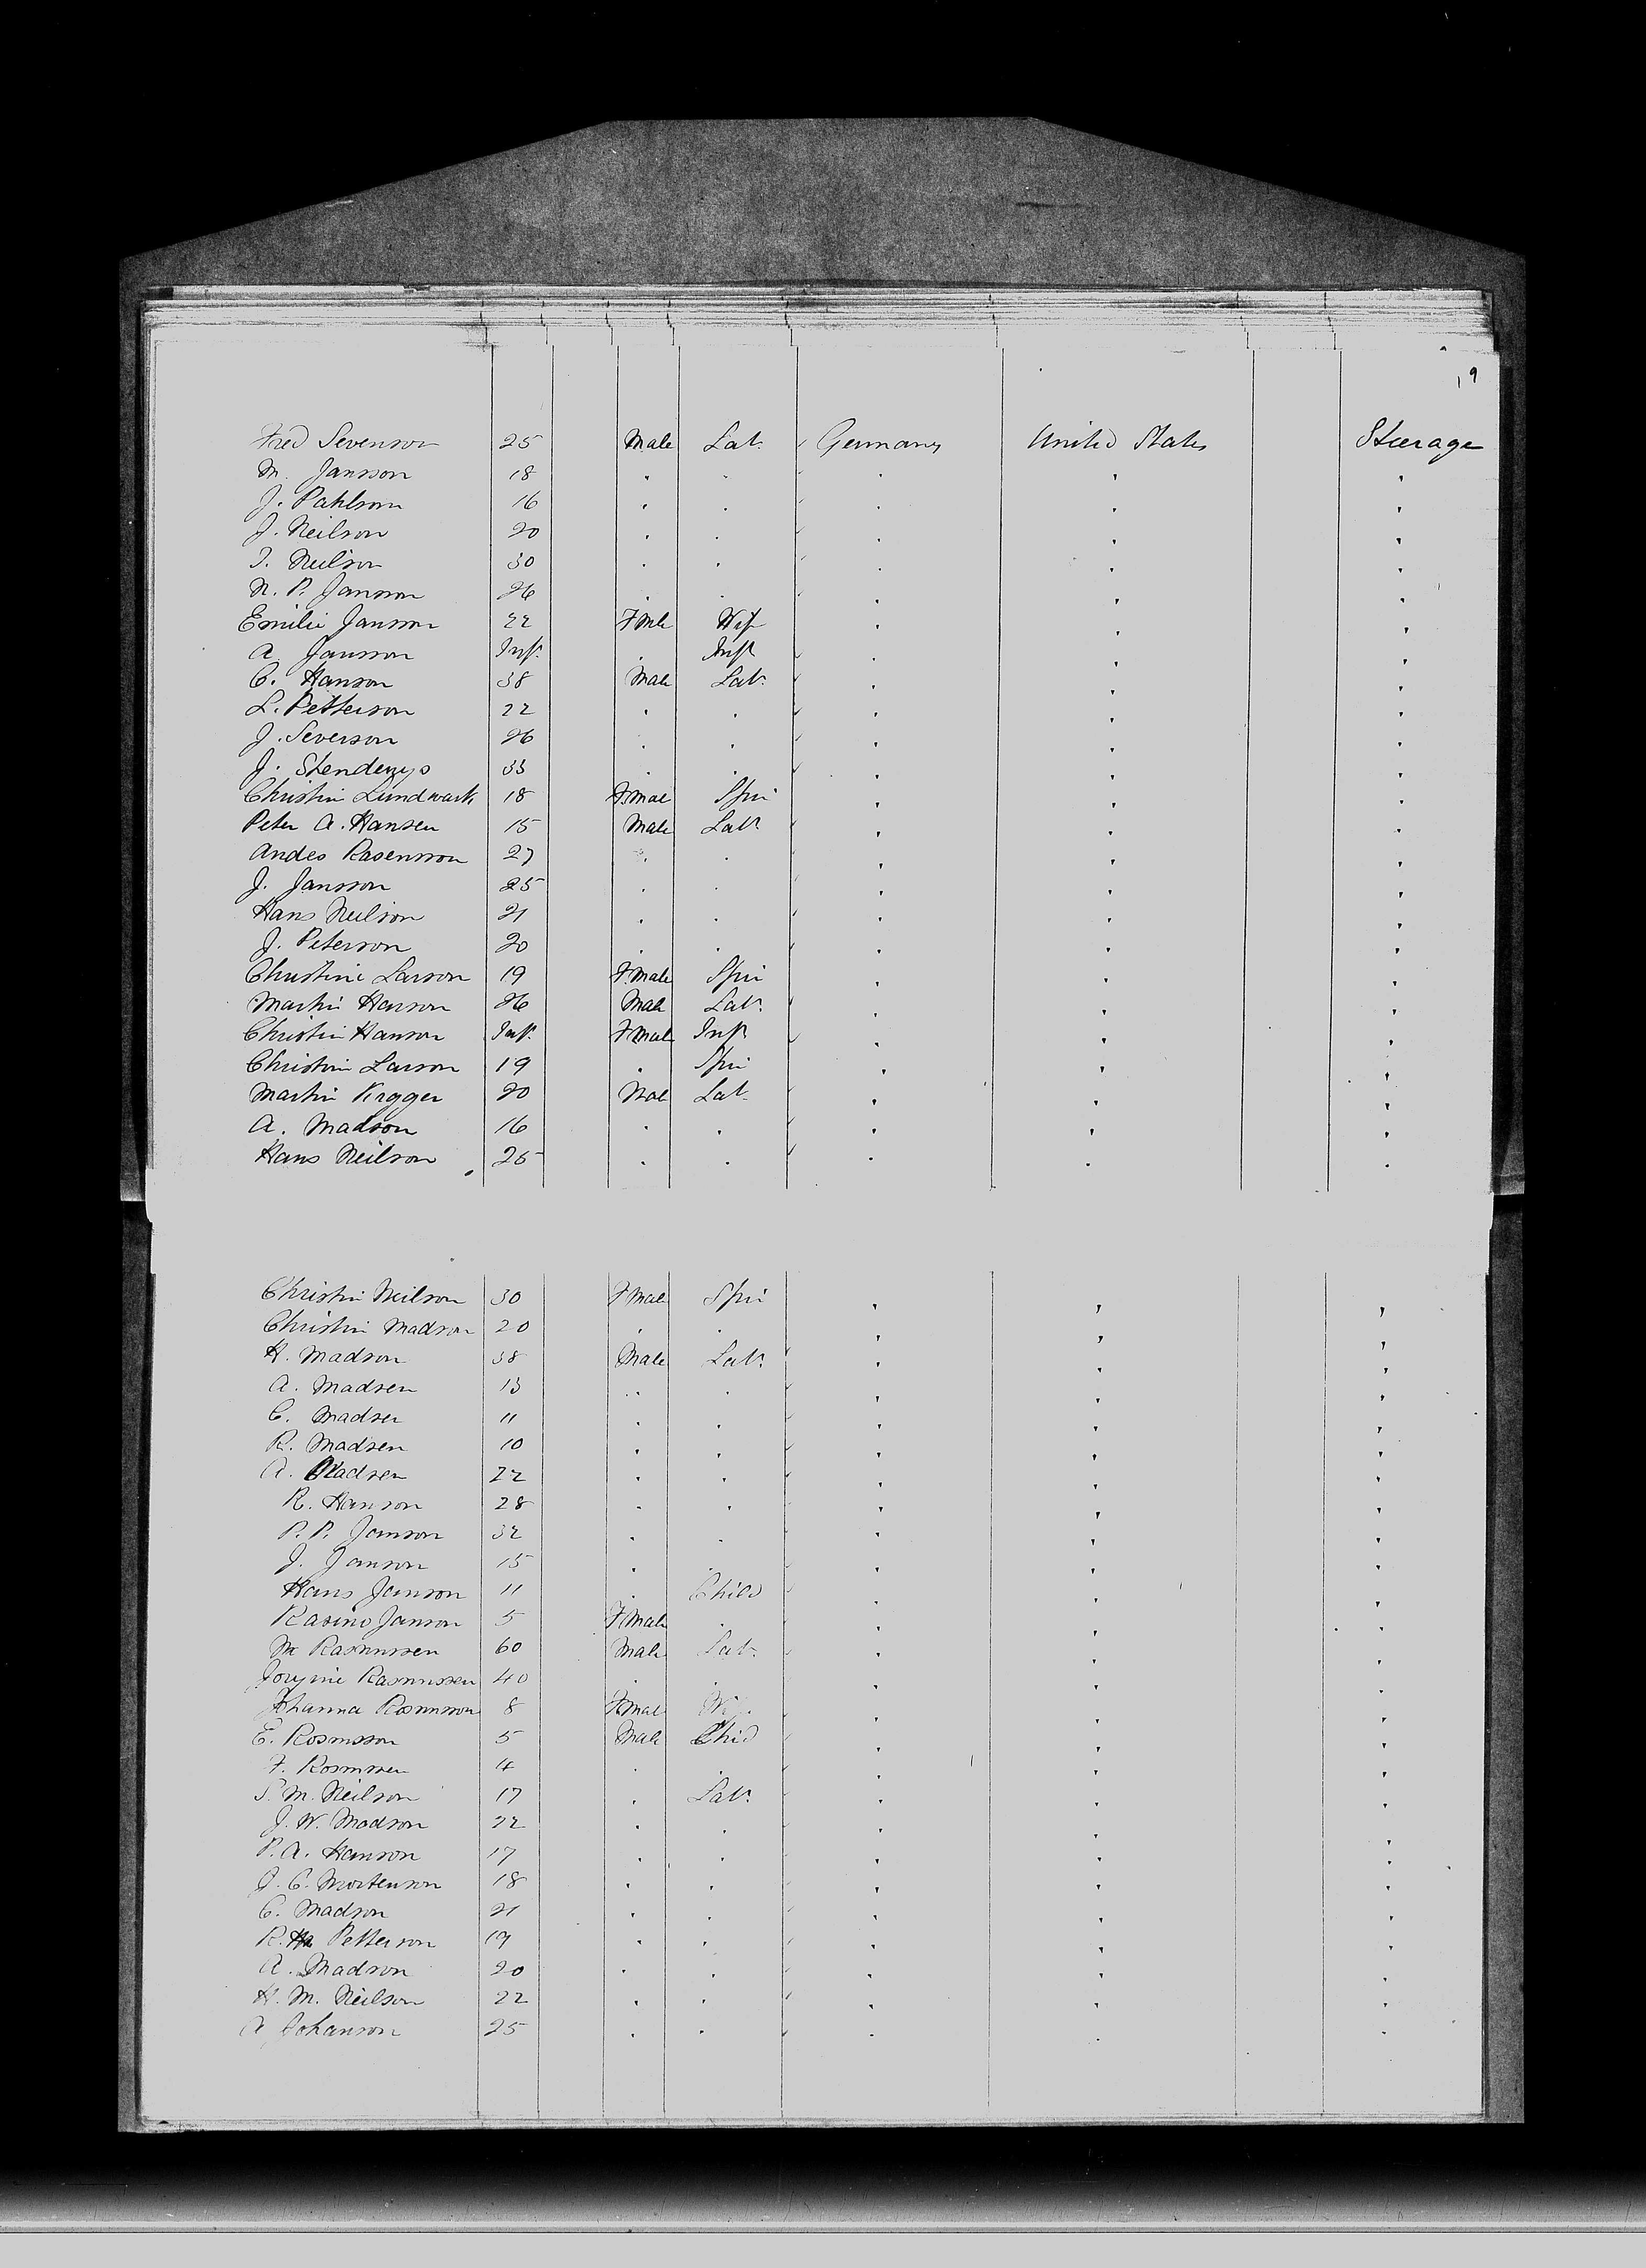 19
Fred Sevenson 25 Male Lab. Germany United States Steerage
M. Jansson 18 " " " " "
J. Pahlson 16 " " " " "
J. Neilson 20 " " " " "
T. Neilson 30 " " " " "
N. P. Janson 26 " " " " "
Emilie Janson 22 Fmle Wif " " "
A. Jansson Inf. " Inft " " "
C. Hanson 38 Male Lab. " " "
L. Petterson 22 " " " " "
J. Severson 26 " " " " "
J. 33 " " " " "
Christin Lundwark 18 F.mal Spin " " "
Peter A. Hansen 15 Male Labr " " "
Andes Rasensson 27 " " " " "
J. Jansson 25 " " " " "
Hans Neilson 21 " " " " "
J. Peterson 20 " " " " "
Christine Larson 19 F.male Spin " " "
Martin Hanson 26 Male Lab. " " "
Christin Hanson Inf. Fmal Inft " " "
Christin Larson 19 " Spin " " "
Martin 20 Mal Lab. " " "
A. Madson 16 " " " " "
Hans Neilson 25 " " " " "
Christin Neilson 30 Fmale Spin " " "
Christin Madson 20 " " " " "
H. Madson 38 Male Lab. " " "
A. Madsen 13 " " " " "
C. Madsen 11 " " " " "
R. Madsen 10 " " " " "
A. Madsen 22 " " " " "
R. Hanson 28 " " " " "
P. P. Janson 32 " " " " "
J. Janson 15 " " " " "
Hans Janson 11 " Child " " "
Rasine Janson 5 Fmale " " " "
M Rasmussen 60 Male Lab. " " "
Rasmussen 40 " " " " "
Johanna Rosmuson 8 Fmal Wif. " " "
E. Rosmsson 5 Male Chid " " "
F. Rosmssen 4 " " " " "
S. M. Neilson 17 " Lab. " " "
J. W. Madson 22 " " " " "
P. A. Hanson 17 " " " " "
J. C. Mortenson 18 " " " " "
C. Madson 21 " " " " "
R. Petterson 19 " " " " "
A. Madson 20 " " " " "
H. M. Neilson 22 " " " " "
A Johanson 25 " " " " "